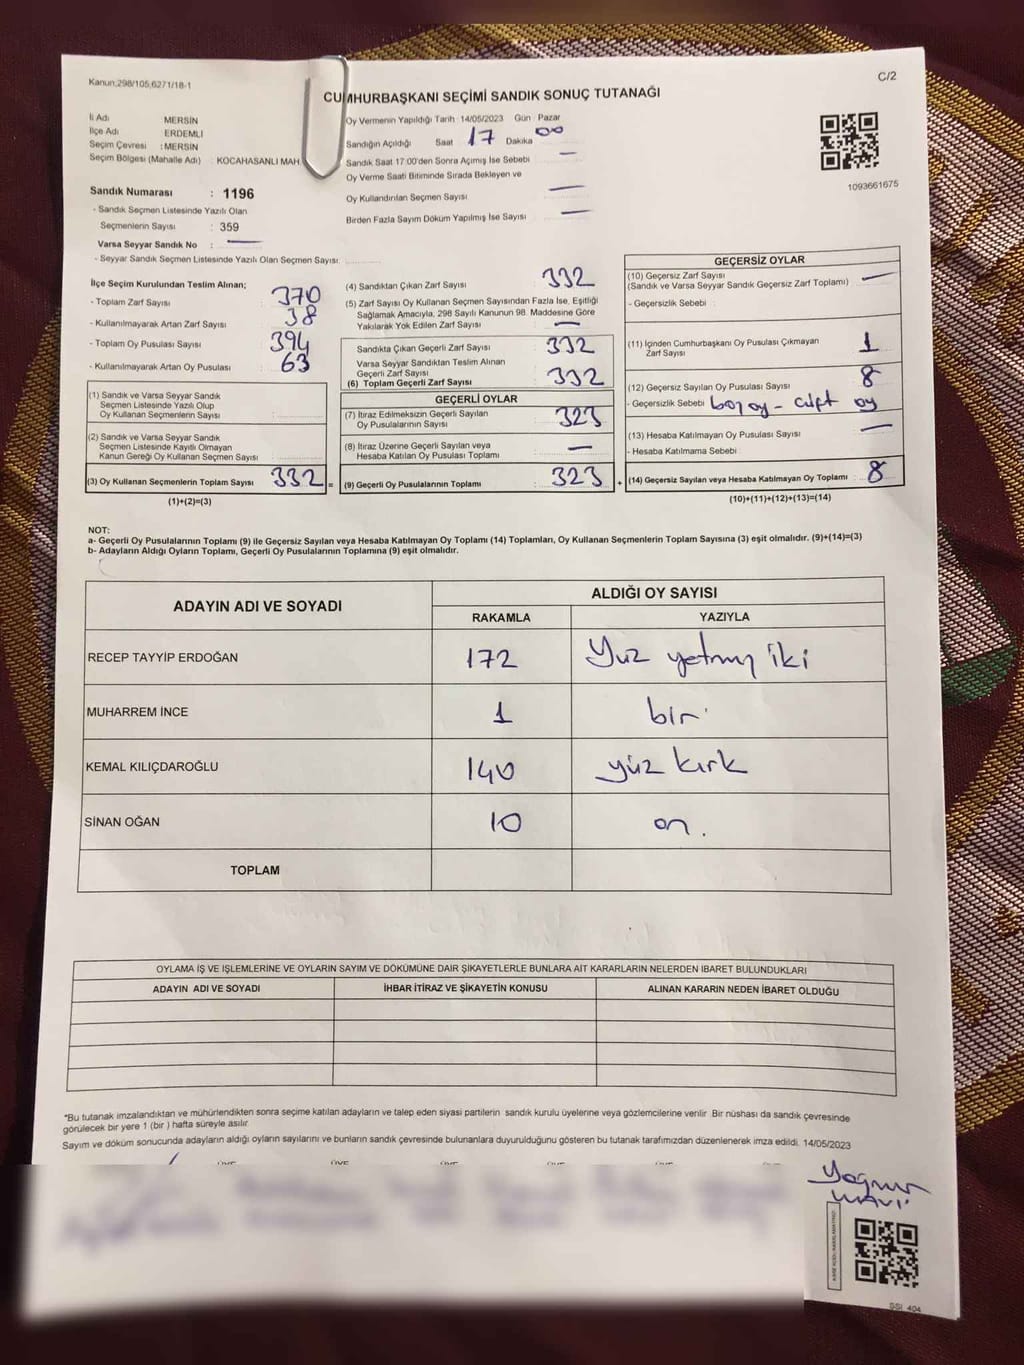 Kanun;298/105,6271/18-1
C/2
CUMHURBAŞKANI SEÇİMİ SANDIK SONUÇ TUTANAĞI
İl Adı MERSİN
İlçe Adı ERDEMLİ
Seçim Çevresi : MERSİN
Seçim Bölgesi (Mahalle Adı) : KOCAHASANLI MAH
Sandık Numarası : 1196
- Sandık Seçmen Listesinde Yazılı Olan
Seçmenlerin Sayısı : 359
Varsa Seyyar Sandık No : —
- Seyyar Sandık Seçmen Listesinde Yazılı Olan Seçmen Sayısı:
Oy Vermenin Yapıldığı Tarih :14/05/2023 Gün : Pazar
Sandığın Açıldığı Saat 17 Dakika 00
Sandık Saat 17:00'den Sonra Açmış İse Sebebi —
Oy Verme Saati Bitiminde Sırada Bekleyen ve
Oy Kullandırılan Seçmen Sayısı —
Birden Fazla Sayım Döküm Yapılmış İse Sayısı —
1093661675
İlçe Seçim Kurulundan Teslim Alınan;
- Toplam Zarf Sayısı 370
- Kullanılmayarak Artan Zarf Sayısı 38
- Toplam Oy Pusulası Sayısı 394
- Kullanılmayarak Artan Oy Pusulası 63
(1) Sandık ve Varsa Seyyar Sandık
Seçmen Listesinde Yazılı Olup
Oy Kullanan Seçmenlerin Sayısı :
(2) Sandık ve Varsa Seyyar Sandık
Seçmen Listesinde Kayıtlı Olmayan
Kanun Gereği Oy Kullanan Seçmen Sayısı :
(3) Oy Kullanan Seçmenlerin Toplam Sayısı 332 =
(1)+(2)=(3)
(4) Sandıktan Çıkan Zarf Sayısı 332
(5) Zarf Sayısı Oy Kullanan Seçmen Sayısından Fazla İse, Eşitliği
Sağlamak Amacıyla, 298 Sayılı Kanunun 98. Maddesine Göre
Yakılarak Yok Edilen Zarf Sayısı —
Sandıkta Çıkan Geçerli Zarf Sayısı 332
Varsa Seyyar Sandıktan Teslim Alınan
Geçerli Zarf Sayısı
(6) Toplam Geçerli Zarf Sayısı 332
GEÇERLİ OYLAR
(7) İtiraz Edilmeksizin Geçerli Sayılan
Oy Pusulalarının Sayısı : 323
(8) İtiraz Üzerine Geçerli Sayılan veya
Hesaba Katılan Oy Pusulası Toplamı —
(9) Geçerli Oy Pusulalarının Toplamı 323 +
GEÇERSİZ OYLAR
(10) Geçersiz Zarf Sayısı —
(Sandık ve Varsa Seyyar Sandık Geçersiz Zarf Toplamı)
- Geçersizlik Sebebi :
(11) İçinden Cumhurbaşkanı Oy Pusulası Çıkmayan
Zarf Sayısı 1
(12) Geçersiz Sayılan Oy Pusulası Sayısı 8
- Geçersizlik Sebebi boş oy - çift oy
(13) Hesaba Katılmayan Oy Pusulası Sayısı —
- Hesaba Katılmama Sebebi
(14) Geçersiz Sayılan veya Hesaba Katılmayan Oy Toplamı : 8
(10)+(11)+(12)+(13)=(14)
NOT:
a- Geçerli Oy Pusulalarının Toplamı (9) ile Geçersiz Sayılan veya Hesaba Katılmayan Oy Toplamı (14) Toplamları, Oy Kullanan Seçmenlerin Toplam Sayısına (3) eşit olmalıdır. (9)+(14)=(3)
b- Adayların Aldığı Oyların Toplamı, Geçerli Oy Pusulalarının Toplamına (9) eşit olmalıdır.
ADAYIN ADI VE SOYADI
ALDIĞI OY SAYISI
RAKAMLA YAZIYLA
RECEP TAYYİP ERDOĞAN 172 Yüz yetmiş iki
MUHARREM İNCE 1 bir
KEMAL KILIÇDAROĞLU 140 yüz kırk
SİNAN OĞAN 10 on.
TOPLAM
OYLAMA İŞ VE İŞLEMLERİNE VE OYLARIN SAYIM VE DÖKÜMÜNE DAİR ŞİKAYETLERLE BUNLARA AİT KARARLARIN NELERDEN İBARET BULUNDUKLARI
ADAYIN ADI VE SOYADI İHBAR İTİRAZ VE ŞİKAYETİN KONUSU ALINAN KARARIN NEDEN İBARET OLDUĞU
"Bu tutanak imzalandıktan ve mühürlendikten sonra seçime katılan adayların ve talep eden siyasi partilerin sandık kurulu üyelerine veya gözlemcilerine verilir. Bir nüshası da sandık çevresinde
görülecek bir yere 1 (bir ) hafta süreyle asılır.
Sayım ve döküm sonucunda adayların aldığı oyların sayılarını ve bunların sandık çevresinde bulunanlara duyurulduğunu gösteren bu tutanak tarafımızdan düzenlenerek imza edildi. 14/05/2023
SSİ 404